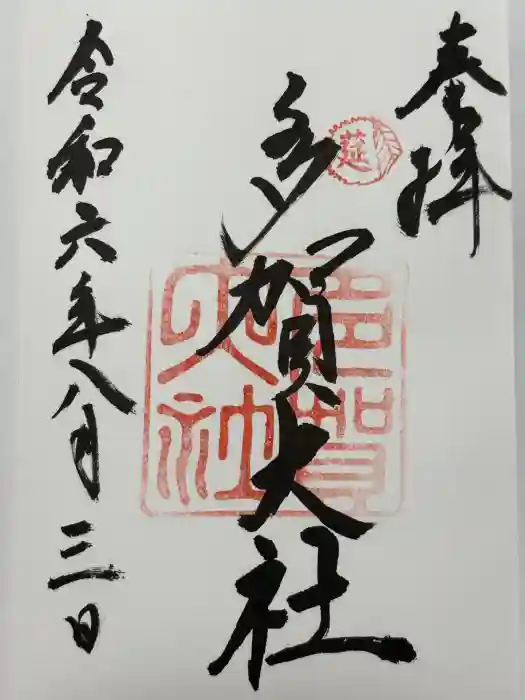 奉拝
莚
多賀大社
多賀大社
令和六年八月三日